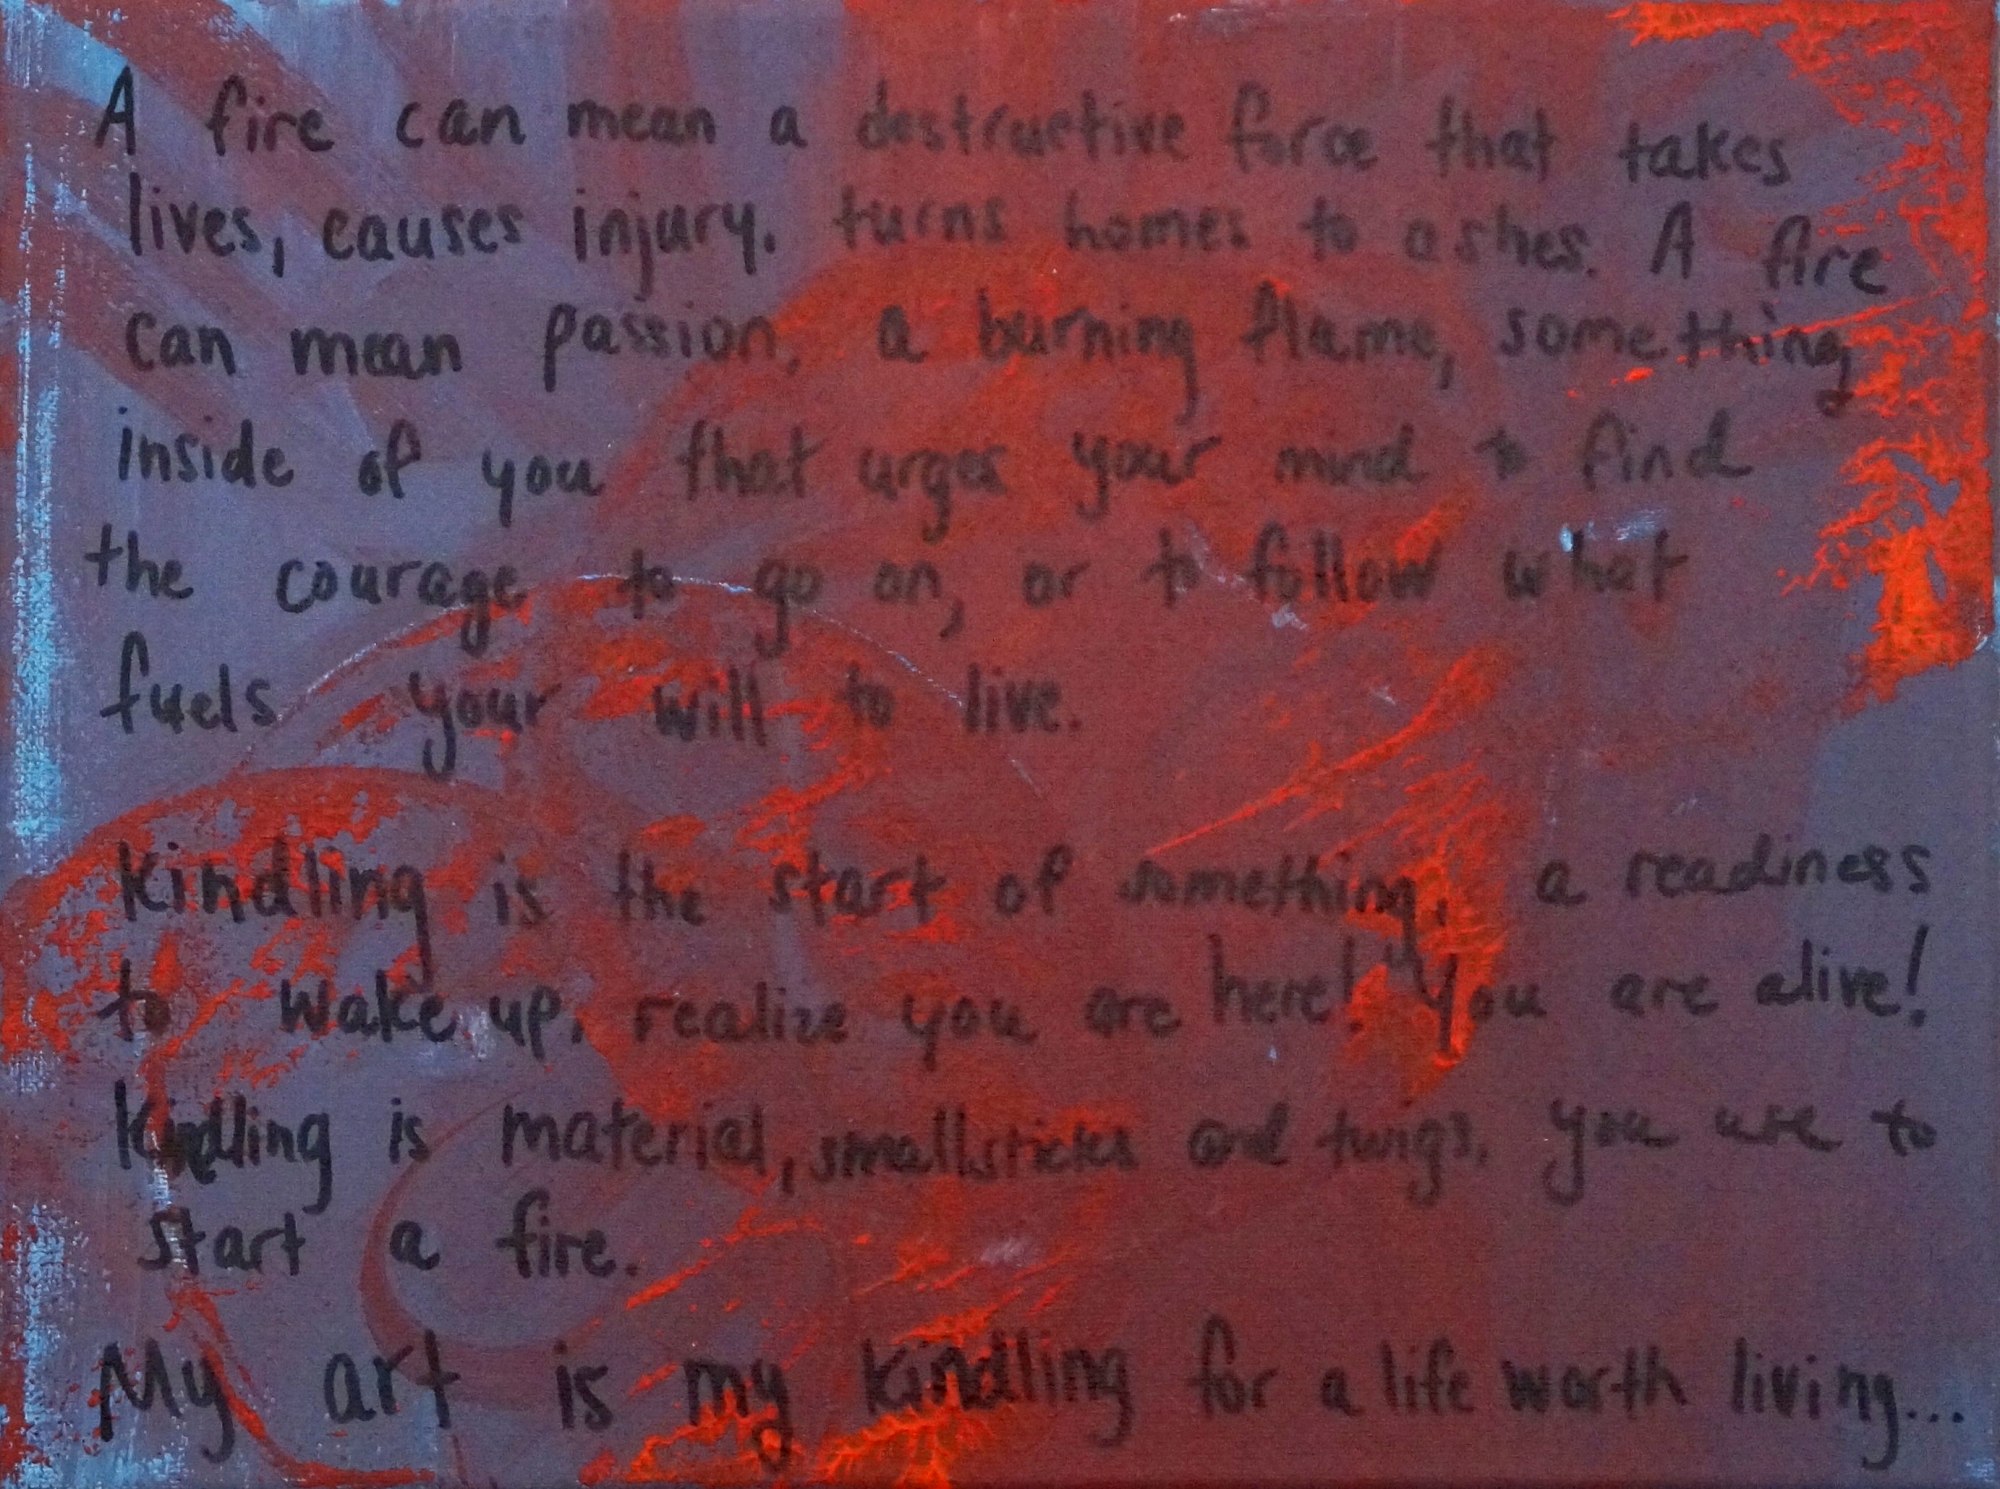 A fire can mean a destructive force that takes
lives, causes injury, turns homes to ashes. A fire
can mean passion, a burning flame, something
inside of you that urges your mind to find
the courage to go on, or to follow what
fuels your will to live.
Kindling is the start of something, a readiness
to wake up, realize you are here! You are alive!
Kindling is material, small sticks and twigs, you use to
start a fire.
My art is my kindling for a life worth living...